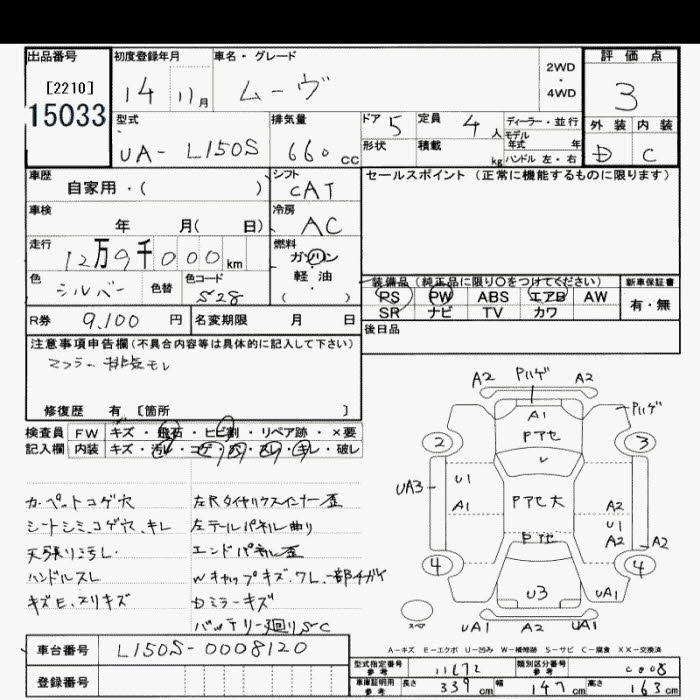 出品番号 初度登録年月 車名・グレード 評価点
[2210] 14 11月 ムーヴ 2WD・4WD 3
15033
型式 排気量 ドア 5 定員 4人 ディーラー・並行 外装 内装
モデル年式 年
UA- L150S 660cc 形状 積載 kg ハンドル 左・右 D C
車歴 シフト セールスポイント (正常に機能するものに限ります)
自家用・( ) CAT
車検 冷房
年 月( 日) AC
走行 燃料
12万9千000km ガソリン
色 色替 色コード 軽・油
シルバー S28 ( )
装備品(純正品に限り○をつけてください) 新車保証書
PS PW ABS エアB AW 有・無
SR ナビ TV カワ
R券 9,100円 名変期限 月 日 後日品
注意事項申告欄(不具合内容等は具体的に記入して下さい)
マフラー排気モレ
修復歴 有 [箇所 ]
検査員 FW キズ・飛石・ヒビ割・リペア跡・×要
記入欄 内装 キズ・汚レ・コゲ・穴・スレ・キレ・破レ
カーペットコゲ穴 左Rタイヤハウスインナー歪
シートシミ、コゲ穴、キレ 左テールパネル曲り
天張り汚し. エンドパネル歪
ハンドルスレ Wキャップキズ、ワレ、一部チガイ
キズE、スリキズ Dミラーキズ
バッテリー廻りS-C
A2 Pハゲ A2
A1 Pハゲ
Pアセ
2 3
UA3 U1 Pアセ大
A1 A2
U1
A2 A2
Pアセ
4 4
U3
UA1 UA1
スペア UA1 A2 UA1
A-キズ E-エクボ U-凹み W-補修跡 S-サビ C-腐食 XX-交換済
車台番号 L150S-0008120
型式指定番号 参考 11672 類別区分番号 参考 0008
登録番号 車庫証明用 参考 長さ 339cm 幅 147cm 高さ 163cm